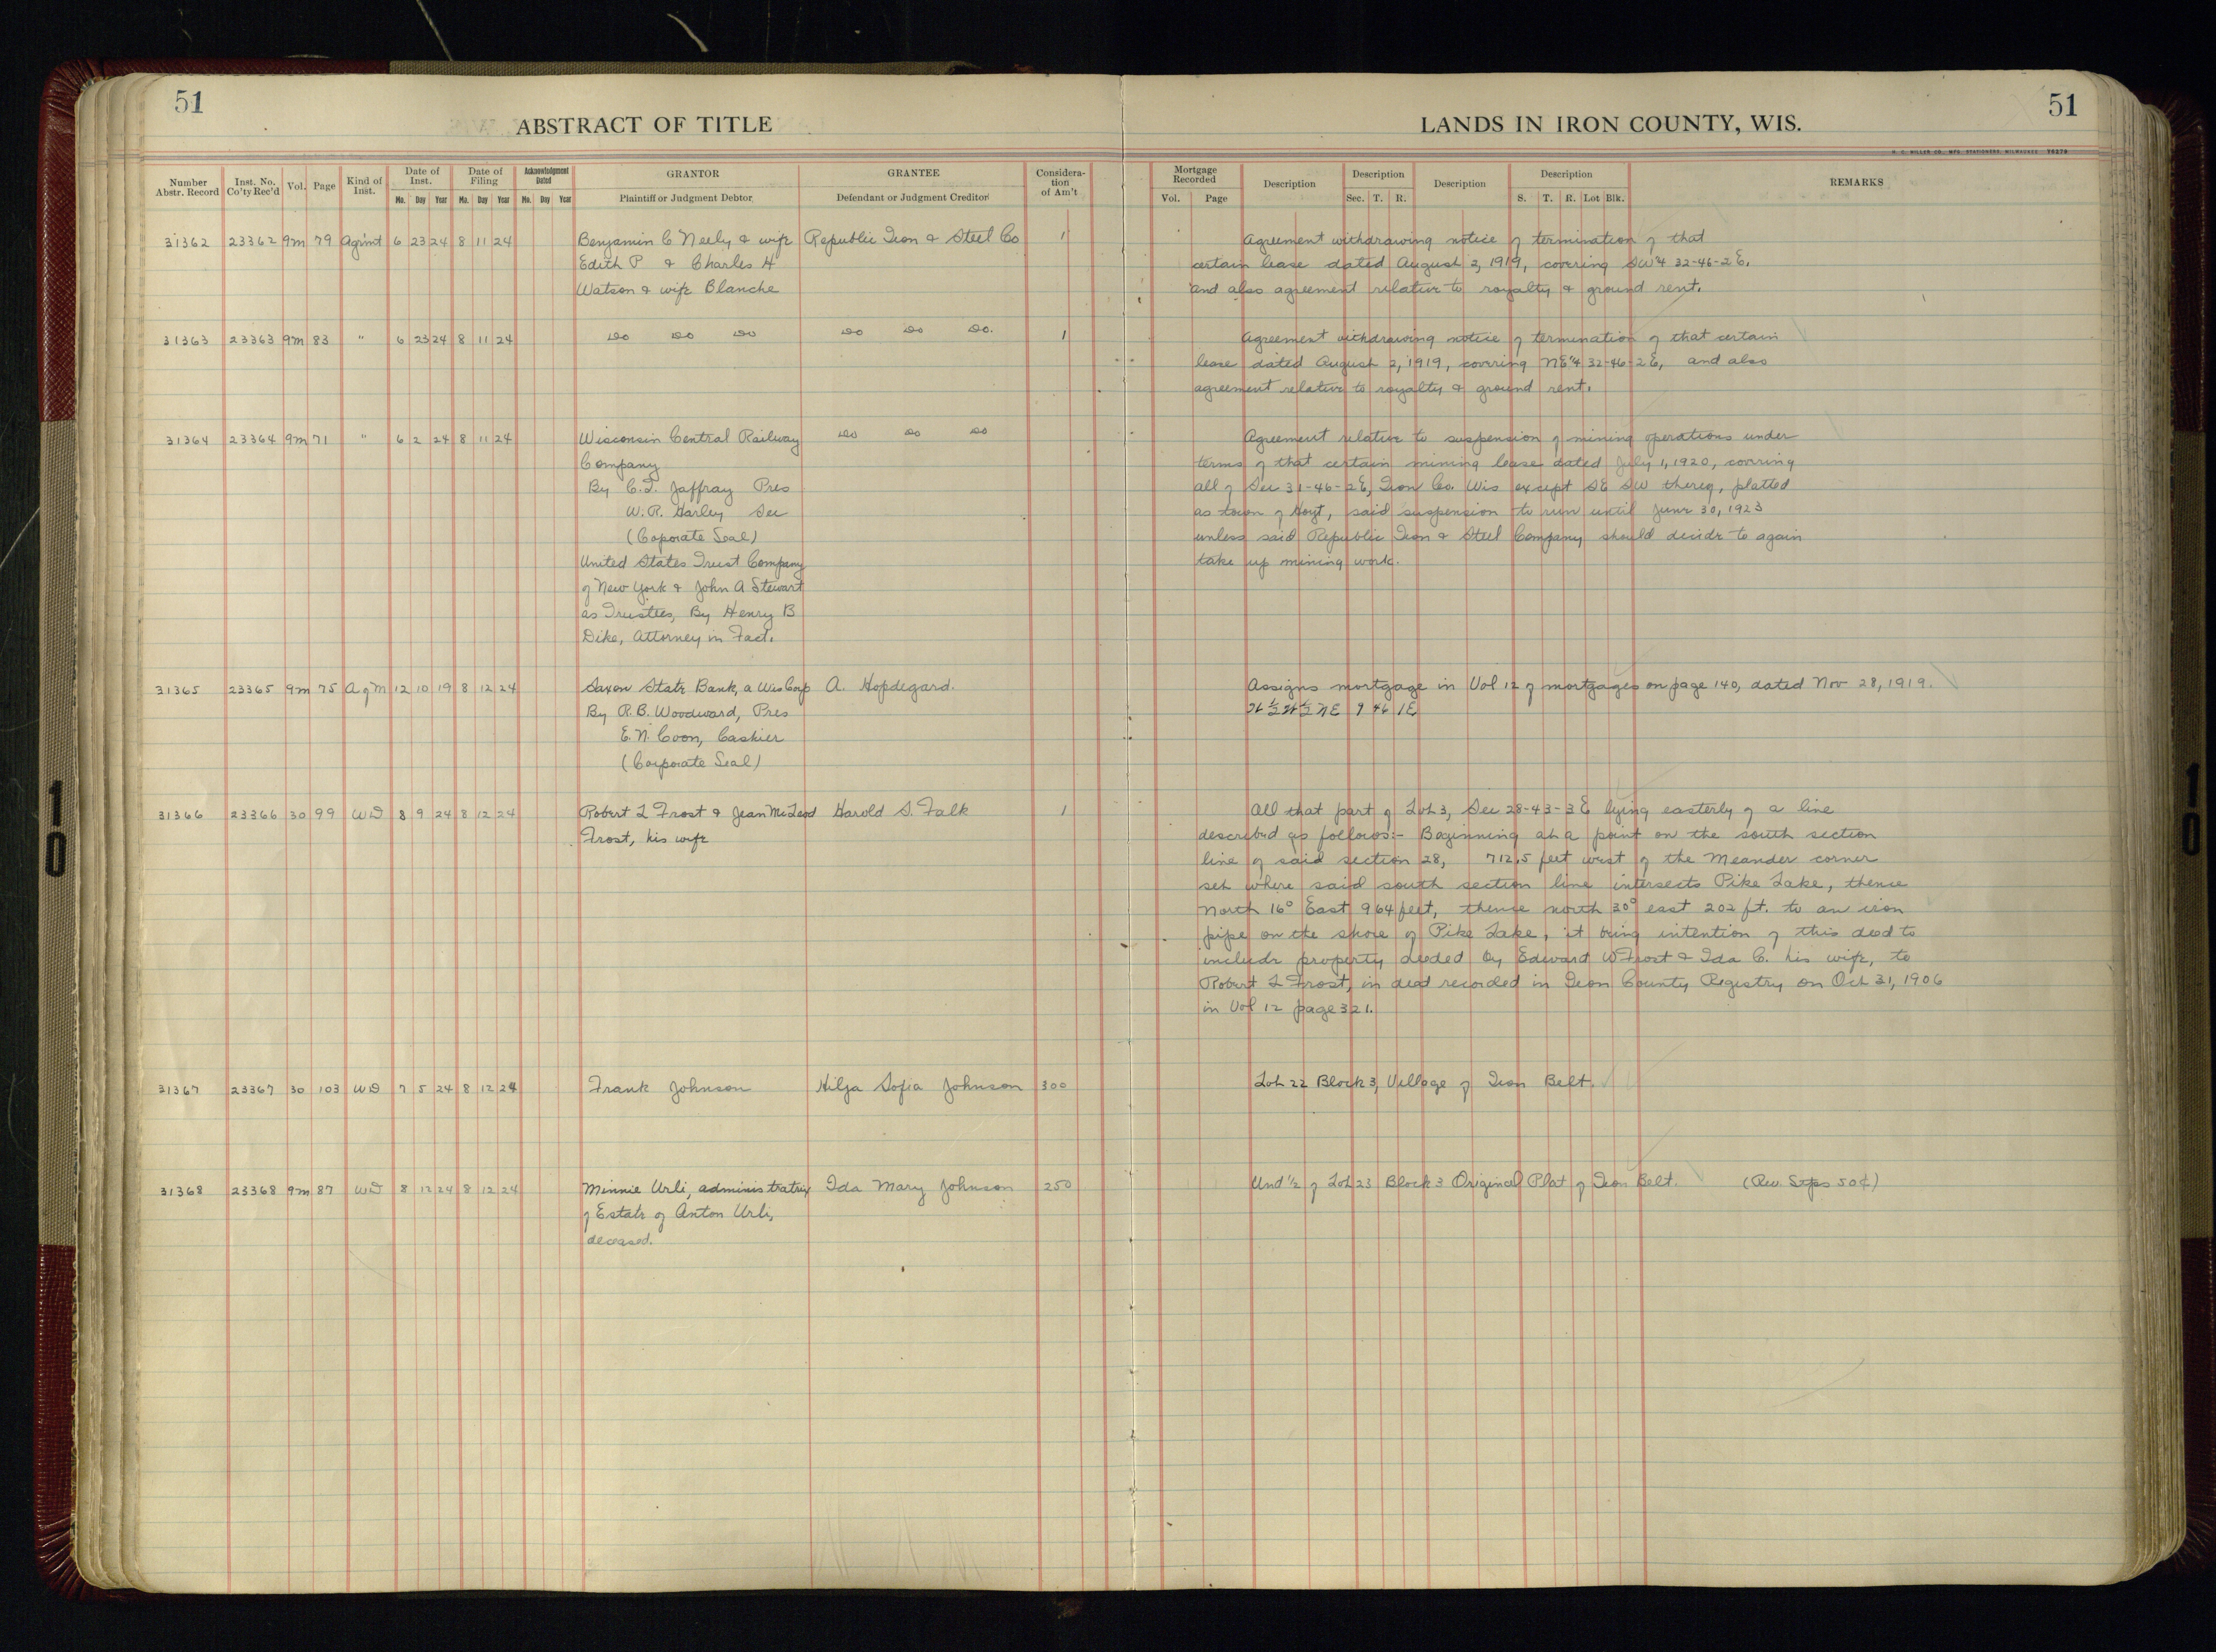 51
51
ABSTRACT OF TITLE
LANDS IN IRON COUNTY, WIS.
Number Abstr. Record Inst. No. Co'ty Rec'd Vol. Page Kind of Inst. Date of Inst. Mo. Day Year Date of Filing Mo. Day Year Acknowledgment Dated Mo. Day Year GRANTOR Plaintiff or Judgment Debtor GRANTEE Defendant or Judgment Creditor Considera-tion of Am't
Mortgage Recorded Vol. Page Description Description Sec. T. R. Description Description S. T. R. Lot Blk. REMARKS
31362 23362 9m 79 Agrmt 6 23 24 8 11 24 Benjamin C Neely & wife Republic Iron & Steel Co 1
Edith P & Charles H
Watson & wife Blanche
Agreement withdrawing notice of termination of that
certain lease dated August 2, 1919, covering SW¼ 32-46-2E.
and also agreement relative to royalty & ground rent.
31363 23363 9m 83 " 6 23 24 8 11 24 Do Do Do Do Do Do. 1
Agreement withdrawing notice of termination of that certain
lease dated August 2, 1919, covering NE¼ 32-46-2E, and also
agreement relative to royalty & ground rent.
31364 23364 9m 71 " 6 2 24 8 11 24 Wisconsin Central Railway Do Do Do
Company
By C.T. Jaffray Pres
W.R. Harley Sec
(Coporate Seal)
United States Trust Company
of New York & John A Stewart
as Trustees, By Henry B
Dike, Attorney in Fact.
Agreement relative to suspension of mining operations under
terms of that certain mining lease dated July 1, 1920, covering
all of Sec 31-46-2E, Iron Co. Wis except SE SW thereof, platted
as town of Hoyt, said suspension to run until June 30, 1923
unless said Republic Iron & Steel Company should decide to again
take up mining work.
31365 23365 9m 75 A of M 12 10 19 8 12 24 Saxon State Bank, a Wis Corp A. Hopdegard.
By R.B. Woodward, Pres
E.N. Coon, Cashier
(Corporate Seal)
Assigns mortgage in Vol 12 of mortgages on page 140, dated Nov 28, 1919.
NE 9 46 1E
31366 23366 30 99 WD 8 9 24 8 12 24 Robert L Frost & Jean McLeod Harold S. Falk 1
Frost, his wife
All that part of Lot 3, Sec 28-43-3E lying easterly of a line
described as follows:- Beginning at a point on the south section
line of said section 28, 712.5 feet west of the Meander corner
set where said south section line intersects Pike Lake, thence
North 16° East 964 feet, thence north 30° east 202 ft. to an iron
pipe on the shore of Pike Lake, it being intention of this deed to
include property deeded by Edward W Frost & Ida C. his wife, to
Robert L Frost, in deed recorded in Iron County Registry on Oct 31, 1906
in Vol 12 page 321.
31367 23367 30 103 WD 7 5 24 8 12 24 Frank Johnson Hilja Sofia Johnson 300
Lot 22 Block 3, Village of Iron Belt.
31368 23368 9m 87 WD 8 12 24 8 12 24 Minnie Urli, administratrix Ida Mary Johnson 250
of Estate of Anton Urli,
deceased.
Und ½ of Lot 23 Block 3 Original Plat of Iron Belt. (Rev. Stps 50¢)
10
10